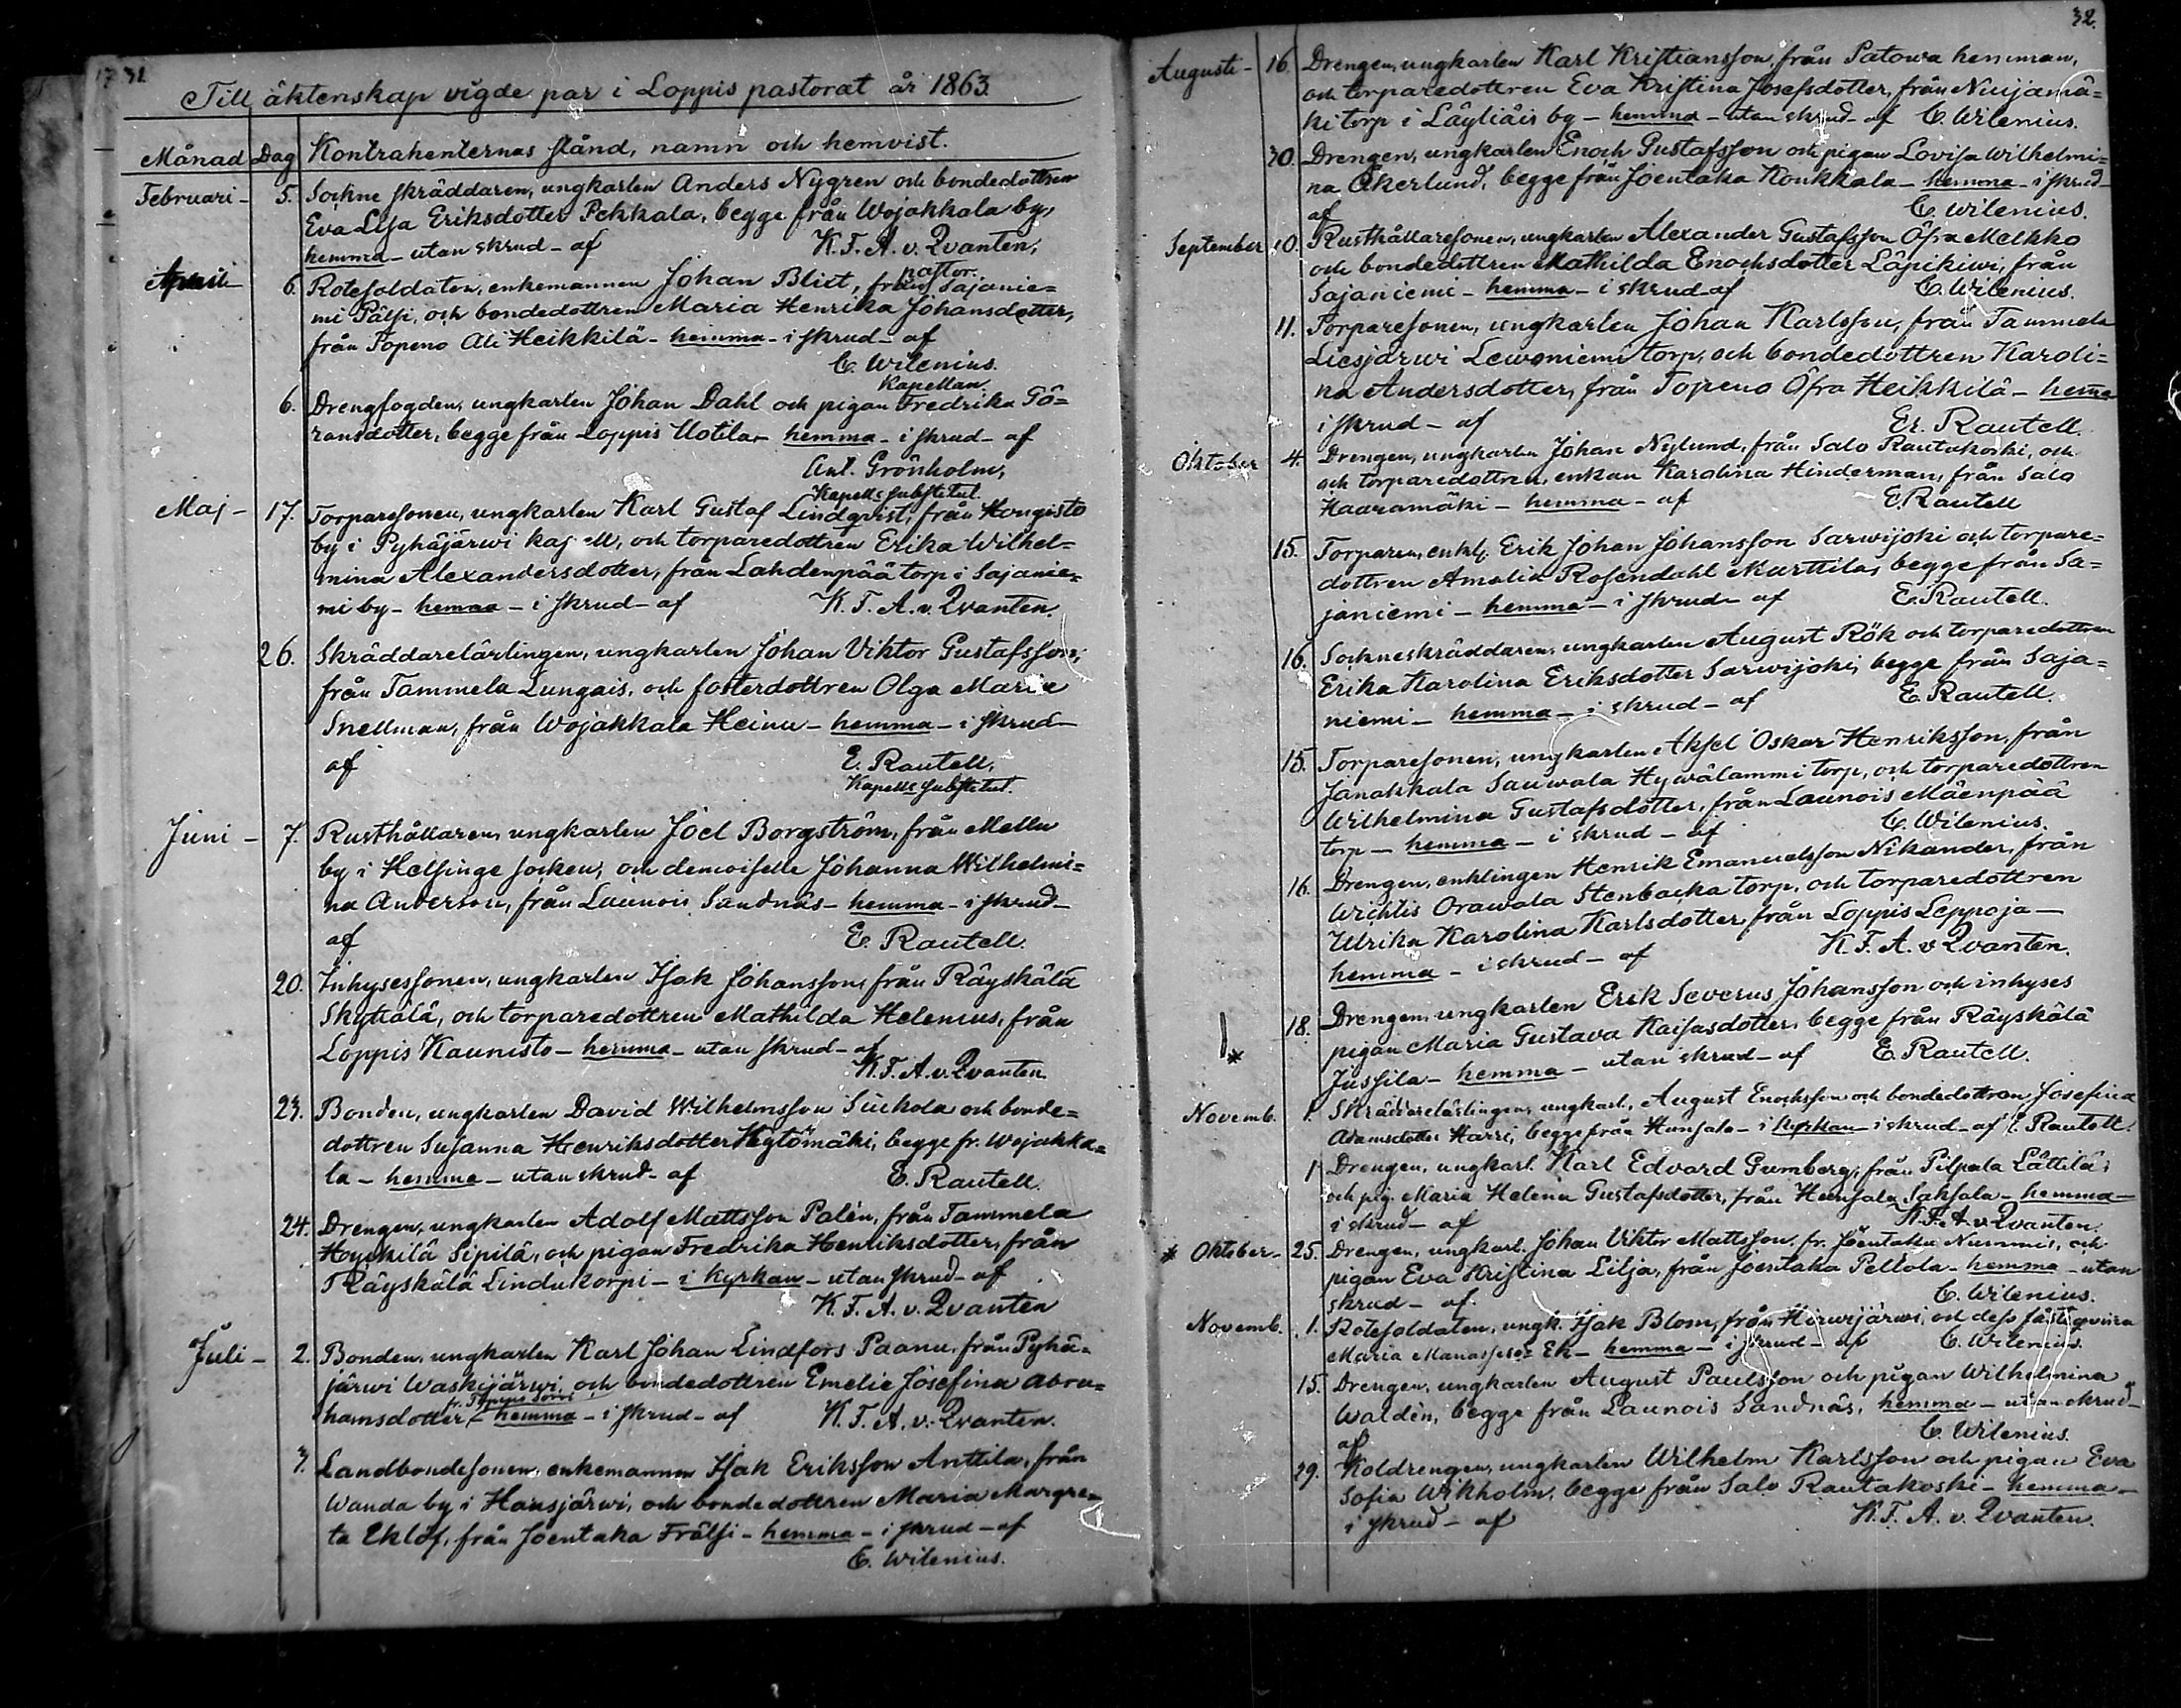 31
Till äktenskap vigde par i Loppis pastorat år 1863.
Månad Dag Kontrahenternas stånd, namn och hemvist.
Februari - 5. Sockne skräddaren, ungkarlen Anders Nygren och bondedottren
Eva Lisa Eriksdotter Pekkala, begge från Wojakkala by,
hemma - utan skrud - af K. F. A. v. Qvanten,
pastor.
April - 6. Rotesoldaten, enkemannen Johan Blixt, från Sajanie=
mi Pälsi, och bondedottren Maria Henrika Johansdotter,
från Topeno Ali Heikkilä - hemma - i skrud - af
C. Wilenius.
Kapellan.
6. Drengfogden, ungkarlen Johan Dahl och pigan Fredrika Gö=
ransdotter, begge från Loppis Uotila - hemma - i skrud - af
Ant. Grönholm,
Kapells substitut.
Maj - 17. Torparesonen, ungkarlen Karl Gustaf Lindqvist, från Hongisto
by i Pyhäjärwi kapell, och torparedottren Erika Wilhel=
mina Alexandersdotter, från Lahdenpää torp i Sajanie=
mi by - hemma - i skrud - af K. F. A. v. Qvanten.
26. Skräddarelärlingen, ungkarlen Johan Viktor Gustafsson,
från Tammela Lungais, och fosterdottren Olga Maria
Snellman, från Wojakkala Heinu - hemma - i skrud -
af E. Rautell,
Kapells substitut.
Juni - 7. Rusthållaren, ungkarlen Joel Borgström, från Mellu
by i Helsinge socken, och demoiselle Johanna Wilhelmi=
na Anderson, från Launois Sandnäs - hemma - i skrud -
af E. Rautell.
20. Inhysessonen, ungkarlen Isak Johansson, från Räyskälä
Skyttälä, och torparedottren Mathilda Helenius, från
Loppis Kaunisto - hemma - utan skrud - af
K. F. A. v. Qvanten.
23. Bonden, ungkarlen David Wilhelmsson Suckola och bonde=
dottren Susanna Henriksdotter Hytömäki, begge fr. Wojakka=
la - hemma - utan skrud - af E. Rautell.
24. Drengen, ungkarlen Adolf Mattsson Palén, från Tammela
Hoyskilä Sipilä, och pigan Fredrika Henriksdotter, från
Räyskälä Lindukorpi - i kyrkan - utan skrud - af
K. F. A. v. Qvanten
Juli - 2. Bonden, ungkarlen Karl Johan Lindfors Paanu, från Pyhä=
järwi Waskijärwi, och bondedottren Emelie Josefina Abra=
fr. Topeno Sorri
hamsdotter - hemma - i skrud - af K. F. A. v. Qvanten.
3. Landbondesonen, enkemannen Isak Eriksson Anttila, från
Wanda by i Hausjärwi, och bondedottren Maria Margre=
ta Eklöf, från Joentaka Frälsi - hemma - i skrud - af
C. Wilenius.
32.
Augusti - 16. Drengen, ungkarlen Karl Kristiansson, från Patowa hemman,
och torparedottren Eva Kristina Josefsdotter, från Nuijamä=
ki torp i Läyliäis by - hemma - utan skrud - af C. Wilenius.
30. Drengen, ungkarlen Enoch Gustafsson och pigan Lovisa Wilhelmi=
na Åkerlund, begge från Joentaka Konkkala - hemma - i skrud -
af C. Wilenius.
September 10. Rusthållaresonen, ungkarlen Alexander Gustafsson Öfra Melkko
och bondedottren Mathilda Enochsdotter Läpikiwi, från
Sajaniemi - hemma - i skrud - af C. Wilenius.
11. Torparesonen, ungkarlen Johan Karlsson, från Tammela
Liesjärwi Lewoniemi torp, och bondedottren Karoli=
na Andersdotter, från Topeno Öfra Heikkilä - hemma
i skrud - af Er. Rautell.
Oktober 4. Drengen, ungkarlen Johan Nylund, från Salo Rautakoski, och
och torparedottren, enkan Karolina Hinderman, från Salo
Haaramäki - hemma - af E. Rautell
15. Torparen, enkl. Erik Johan Johansson Sarwijoki och torpare=
dottren Amalia Rosendahl Murttila, begge från Sa=
janiemi - hemma - i skrud - af E. Rautell.
16. Sockneskräddaren, ungkarlen August Rök och torparedottren
Erika Karolina Eriksdotter Sarwijoki, begge från Saja=
niemi - hemma - i skrud - af E. Rautell.
15. Torparesonen, ungkarlen Aksel Oskar Henriksson, från
Janakkala Sauwala Hywälammi torp, och torparedottren
Wilhelmina Gustafsdotter, från Launois Mäenpää
torp - hemma - i skrud - af C. Wilenius.
16. Drengen, enklingen Henrik Emanuelsson Nikander, från
Wichtis Orawala Stenbacka torp, och torparedottren
Ulrika Karolina Karlsdotter, från Loppis Leppoja -
hemma - i skrud - af K. F. A. v. Qvanten.
18. Drengen, ungkarlen Erik Severus Johansson och inhyses
pigan Maria Gustava Kaisasdotter, begge från Räyskälä
Jussila - hemma - utan skrud - af E. Rautell.
Novemb. 1. Skräddarelärlingen, ungkarl. August Enochsson och bondedottren Josefina
Adamsdotter Harri, begge från Hunsala - i kyrkan - i skrud - af E. Rautell.
1 Drengen, ungkarl. Karl Edvard Gumberg, från Pilpala Lättilä,
och pig. Maria Helena Gustafsdotter, från Hunsala Saksala - hemma -
i skrud - af K. F. A. v. Qvanten.
* Oktober - 25. Drengen, ungkarl. Johan Viktor Mattsson, fr. Joentaka Nummis, och
pigan Eva Kristina Lilja, från Joentaka Pellola - hemma - utan
skrud - af C. Wilenius.
Novemb. 1. Rotesoldaten, ungk. Isak Blom, från Hirwijärwi, och dess fästeqvinna
Maria Manassesdr Ek - hemma - i skrud - af C. Wilenius.
15. Drengen, ungkarlen August Paulsson och pigan Wilhelmina
Waldén, begge från Launois Sandnäs, hemma - utan skrud -
af C. Wilenius.
29. Koldrengen, ungkarlen Wilhelm Karlsson och pigan Eva
Sofia Wikholm, begge från Salo Rautakoski - hemma -
i skrud - af K. F. A. v. Qvanten.